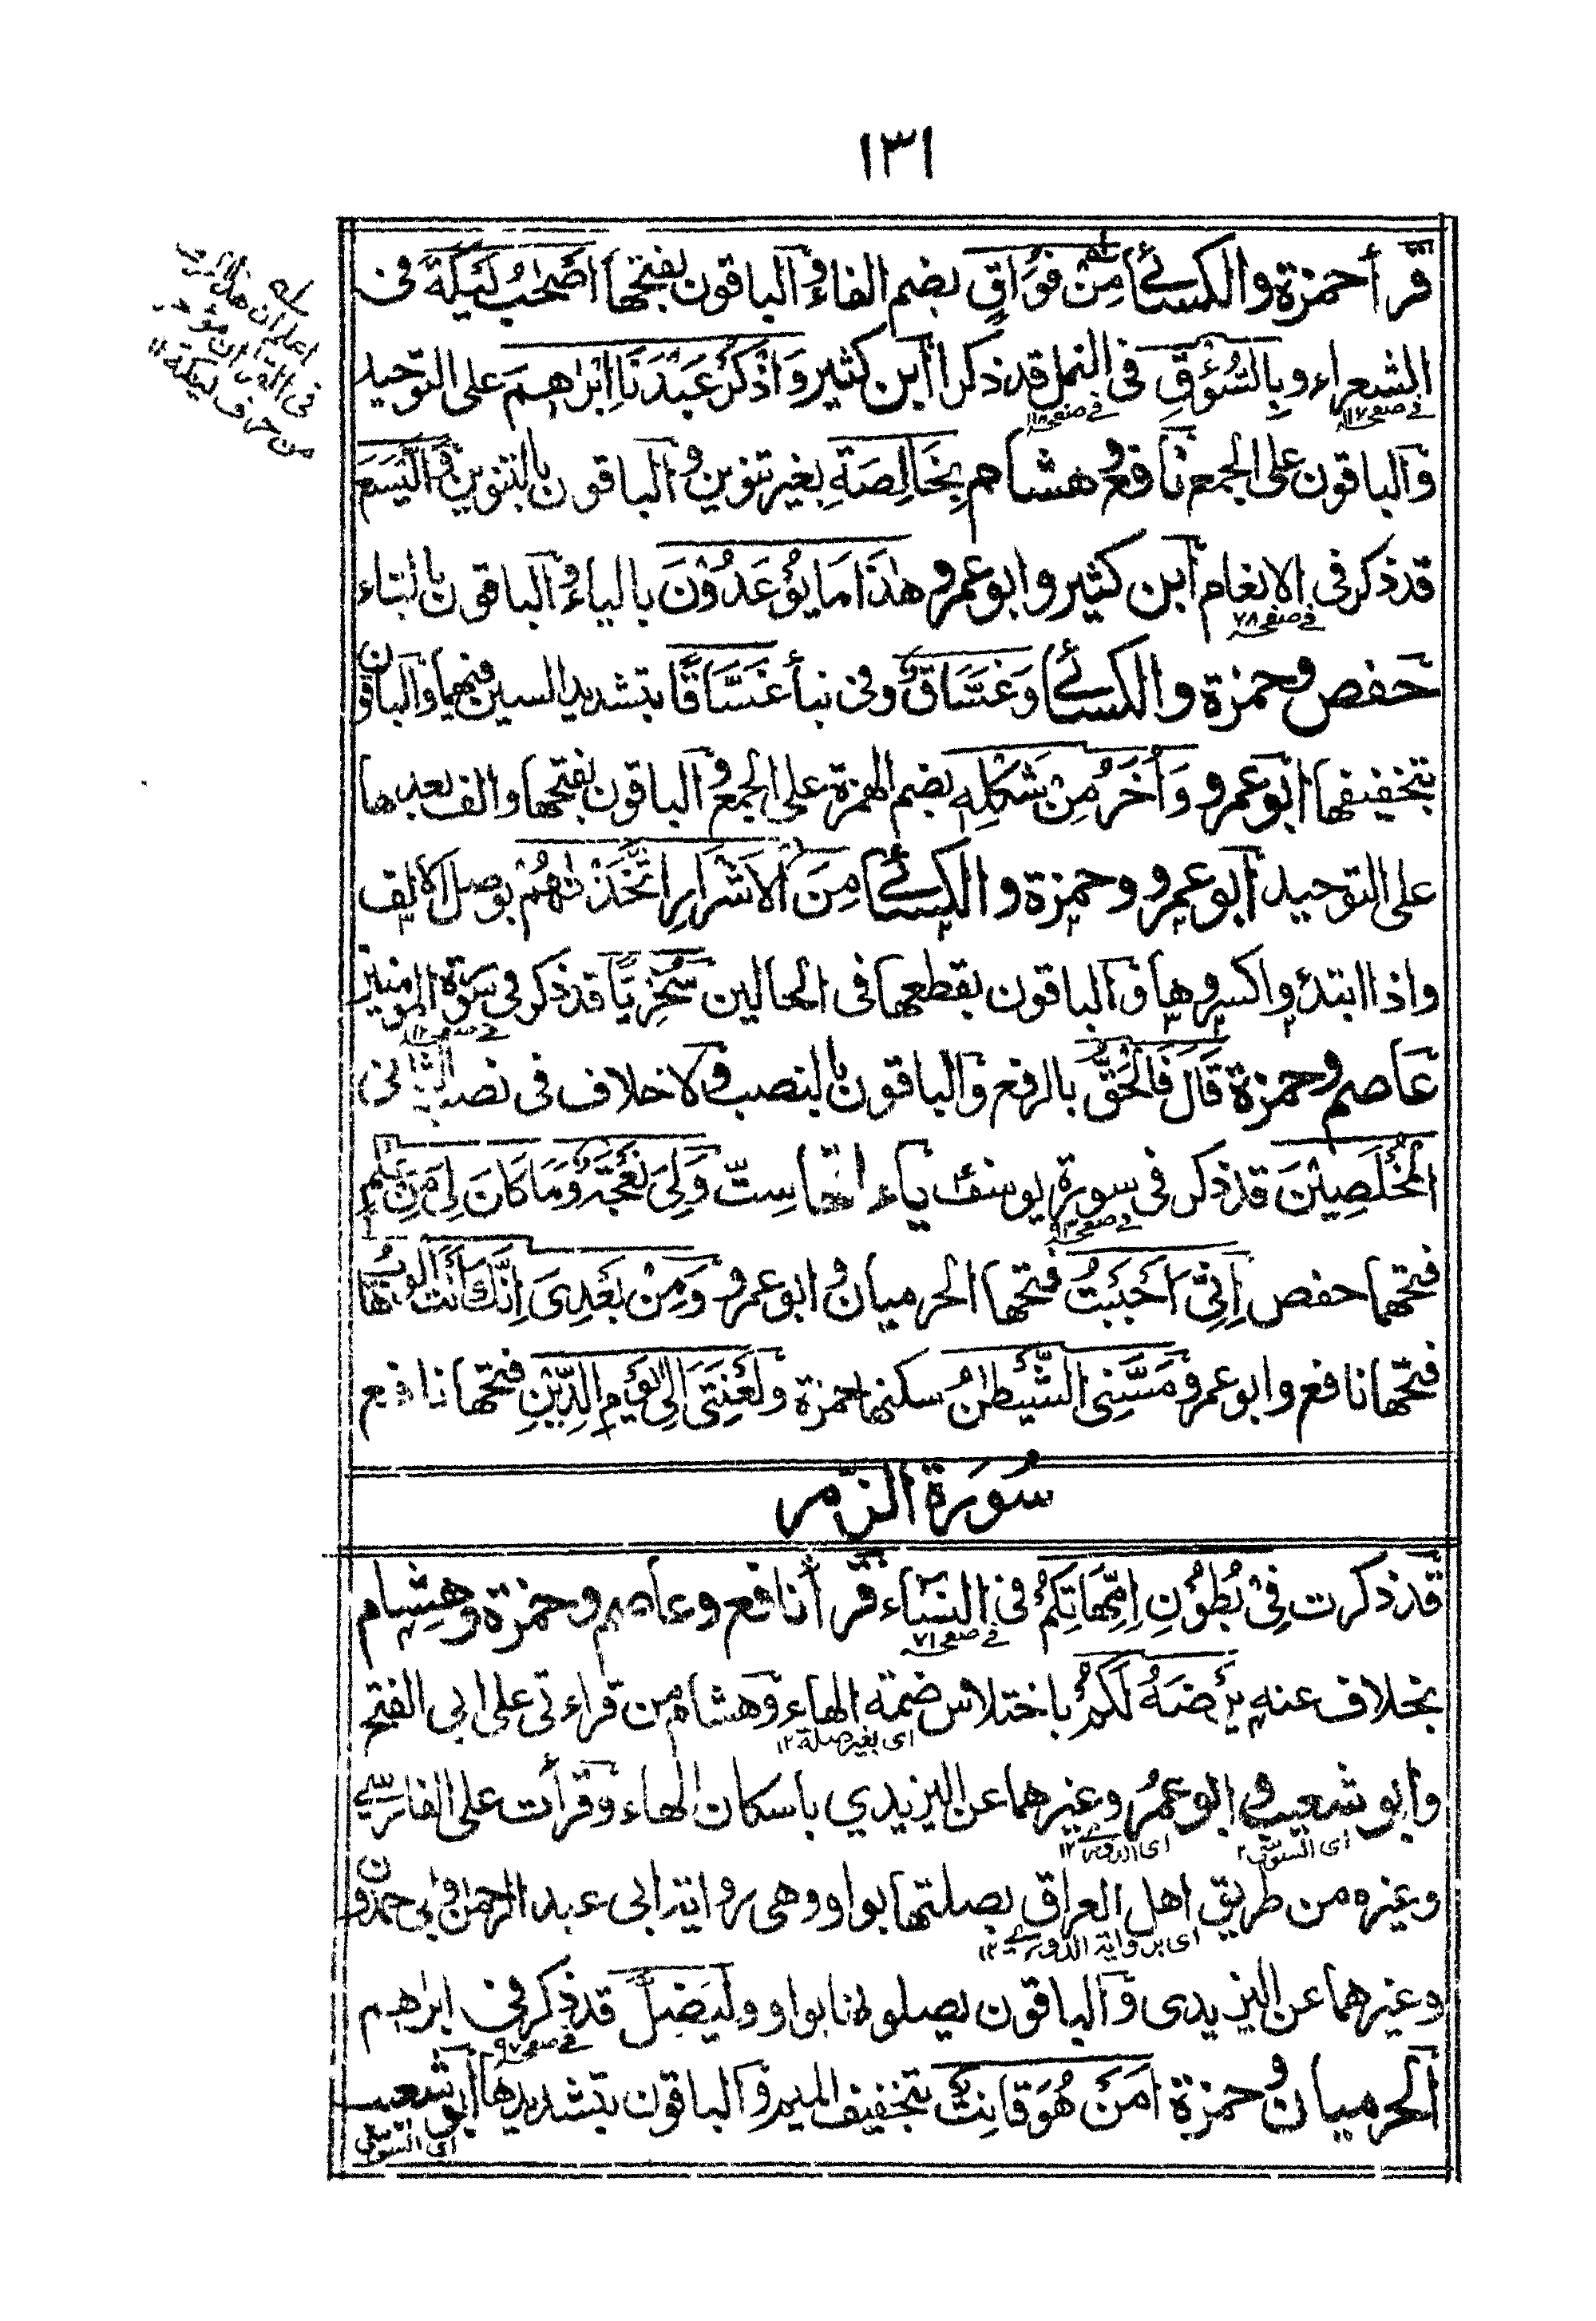 ١٣١
قرأ حمزة والكسائے مِنْ فُوَاقٍ بضم الفاء والباقون بفتحها اَصْحٰبُ لْئَيْكَةَ فی
الشعراء وبِالسُّوْقِ فی النمل قد ذكرا ابن كثير وَاذْكُرْ عَبْدَنَا اِبْرٰهِيْمَ على التوحيد
فے صفحہ ١١٧ فے صفحہ ١١٨
والباقون على الجمع نافع وهشام بِخَالِصَةِ بغير تنوين والباقون بالتنوين وَالْيَسَعَ
قد ذكر فی الانعام ابن كثير وابو عمرو هٰذَا مَا يُوْعَدُوْنَ بالياء والباقون بالتاء
فے صفحہ ٧٨
حفص وحمزة والكسائے وَغَسَّاقٌ وفی نبأ غَسَّاقًا بتشديد السين فيهما والباقون
بتخفيفها ابو عمرو وَاُخَرُ مِنْ شَكْلِهٖ بضم الهمزة على الجمع والباقون بفتحها والف بعدها
على التوحيد ابو عمرو وحمزة والكسائے مِنَ الْاَشْرَارِ اتَّخَذْنٰهُمْ بوصل الالف
واذا ابتدؤا كسروها والباقون بقطعها فی الحالين سُخْرِيًّا قد ذكر فی سورة المؤمنين
عاصم وحمزة قَالَ فَالْحَقُّ بالرفع والباقون بالنصب ولا خلاف فی نصب الثانی
الْمُخْلَصِيْنَ قد ذكر فی سورة يوسف ياءاتها ستّ وَلِیَ نَعْجَةٌ وَمَا كَانَ لِیَ مِنْ عِلْمٍ
فتحهما حفص اِنِّیْ اَحْبَبْتُ فتحها الحرميان وابو عمرو وَمِنْ بَعْدِیْ اِنَّكَ اَنْتَ الْوَهَّابُ
فتحها نافع وابو عمرو مَسَّنِیَ الشَّيْطٰنُ سكنها حمزة ولَعْنَتِیْ اِلٰی يَوْمِ الدِّيْنِ فتحها نافع
سُوْرَةُ الزّمر
قد ذكرت فِیْ بُطُوْنِ اِمَّهَاتِكُمْ فی النساء قرأ نافع وعاصم وحمزة وهشام
فے صفحہ ٧١
بخلاف عنه يَرْضَهُ لَكُمْ باختلاس ضمة الهاء وهشام من قراءتی على ابی الفتح
ای بغير صلة ١٢
وابو شعيب وابو عمر وغيرهما عن اليزيدي باسكان الهاء وقرأت على الفارسے
ای السوسی ١٢ ای الدوری ١٢
وغيره من طريق اهل العراق بصلتها بواو وهی رواية ابی عبد الرحمٰن وابی حمدون
ای برواية الدورے ١٢
وغيرهما عن اليزيدی والباقون يصلونها بواو وليَضِلَّ قد ذكر فی ابرٰهيم
الحرميان وحمزة اَمَنْ هُوَ قَانِتٌ بتخفيف الميم والباقون بتشديدها ابو شعيب
ای السوسی
اعلم ان
فی القرآن
من حرف ليكة ١٢